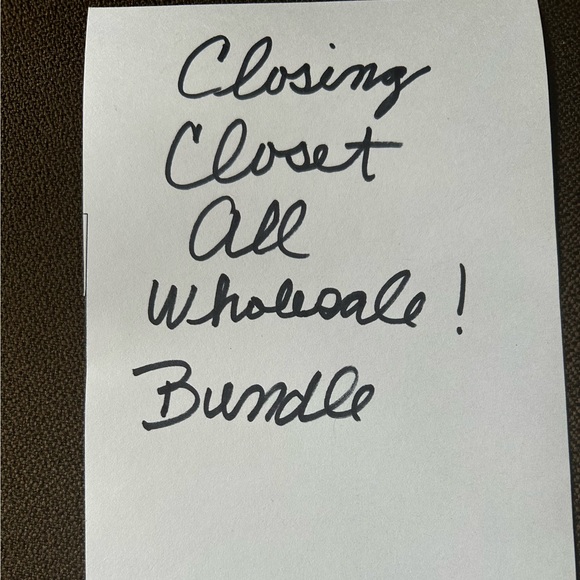 Closing
Closet
All
Wholesale!
Bundle